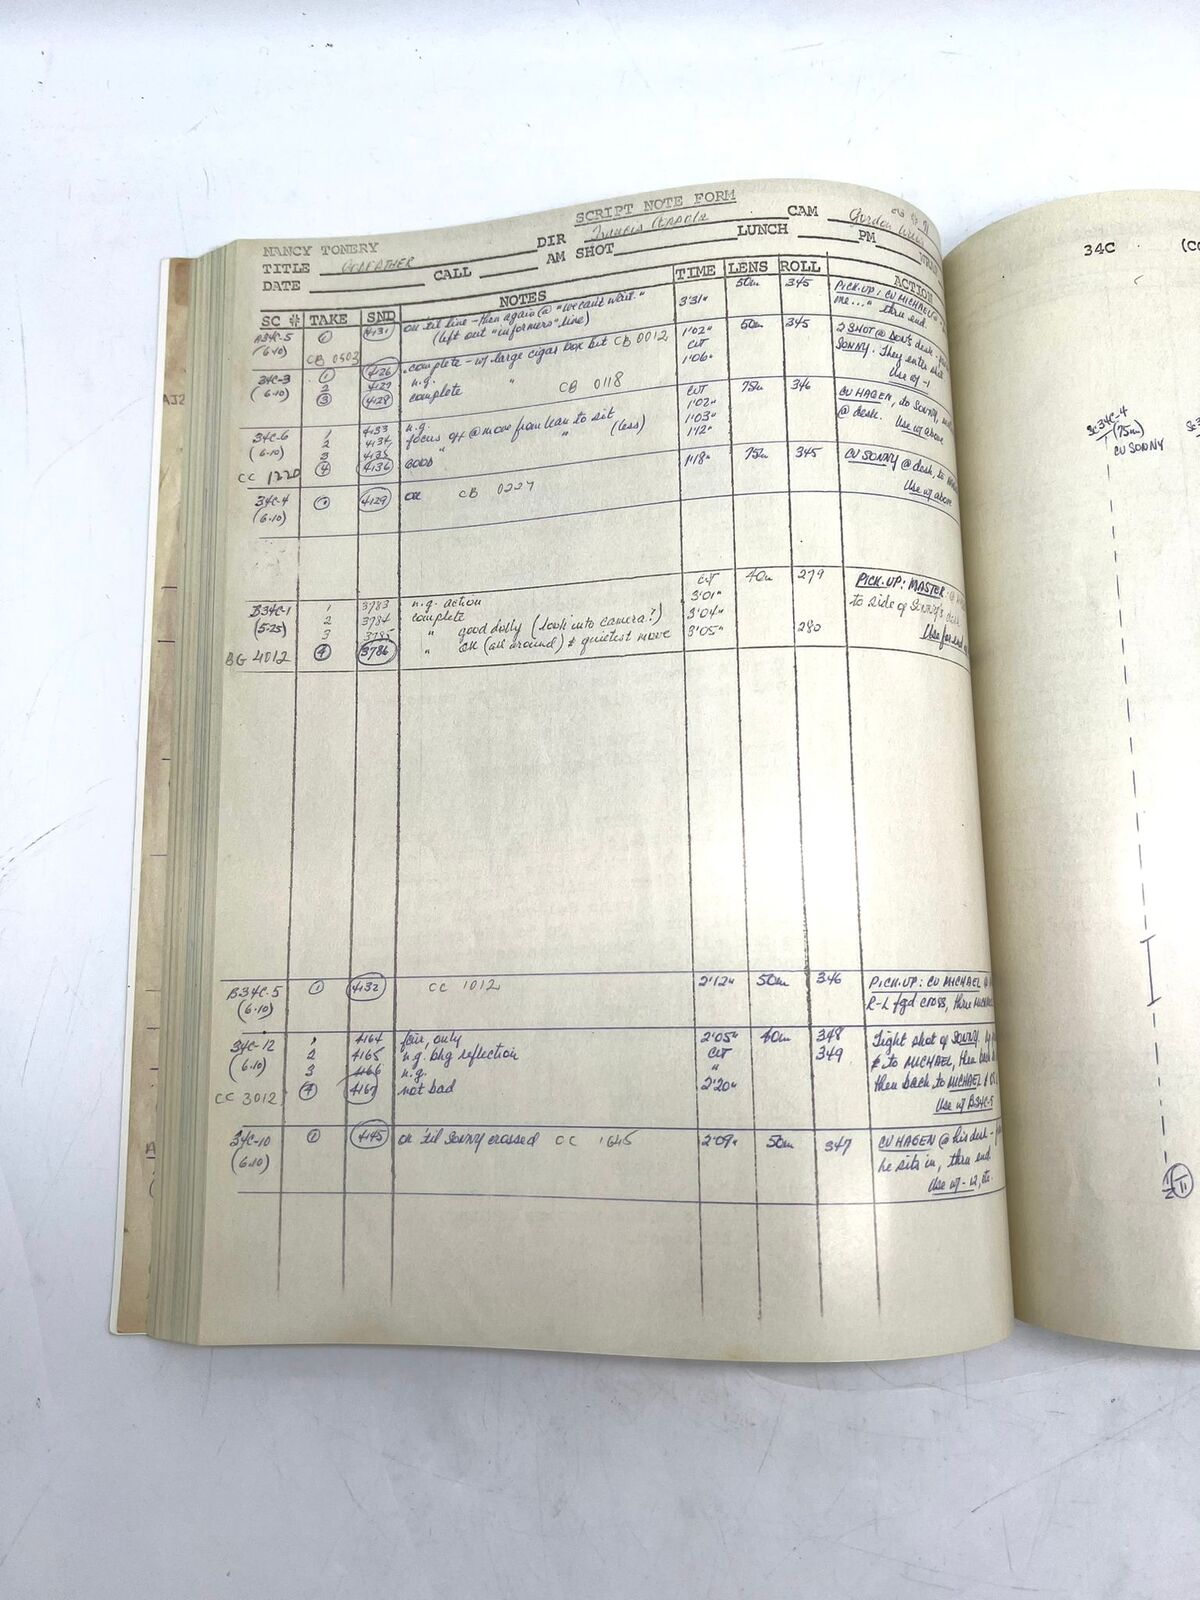 SCRIPT NOTE FORM
NANCY TONERY DIR Francis Coppola CAM Gordon Willis
TITLE GODFATHER CALL AM SHOT LUNCH PM
DATE
SC # TAKE SND NOTES TIME LENS ROLL ACTION
A34C-5 1 4131 OK 'til line - then again @ "we can't wait." 3'31" 50m 345 PICK-UP: CU MICHAEL
(6-10) (left out "informers" line) me..." thru end
CB 0502
34C-3 1 4126 complete - w/ large cigar box bit CB 0012 1'02" 50m 345 2 SHOT @ DON'S desk
(6-10) 2 4127 n.g. CUT SONNY. They enter
3 4128 complete " CB 0118 1'06" Use w/-1
34C-6 1 4133 n.g. CUT 75m 346 CU HAGEN, to SONNY
(6-10) 2 4134 focus off @ move from lean to sit 1'02" @ desk. Use w/ above
3 4135 " " (less) 1'03"
CC 1220 4 4136 GOOD 1'12"
34C-4 1 4129 OK CB 0227 1'18" 75m 345 CU SONNY @ desk, to
(6-10) Use w/ above
B34C-1 1 3783 n.g. action CUT 40m 279 PICK-UP: MASTER
(5-25) 2 3784 complete 3'01" to side of SONNY'S
3 3785 " good dolly (look into camera?) 3'04" Use for end
BG 4012 4 3786 " OK (all around) & quietest move 3'05" 280
B34C-5 1 4132 CC 1012 2'12" 50m 346 PICK-UP: CU MICHAEL
(6-10) R-L fgd cross, thru MICHAEL
34C-12 1 4164 fair, only 2'05" 40m 348 Tight shot of SONNY
(6-10) 2 4165 n.g. bkg reflection CUT 349 & to MICHAEL, then back
3 4166 n.g. " then back to MICHAEL &
CC 3012 4 4167 not bad 2'20" Use w/ B34C-5
34C-10 1 4145 OK 'til SONNY crossed CC 1645 2'09" 50m 347 CU HAGEN @ his desk -
(6-10) he sits in, thru end
Use w/ -12, etc.
AJ2
34C (CO
Sc 34C-4
(75m)
CU SONNY